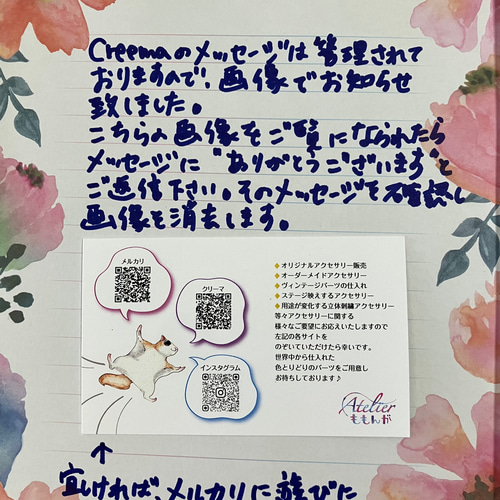 Creemaのメッセージは管理されて
おりますので、画像でお知らせ
致しました。
こちらの画像をご覧になられたら
メッセージに"ありがとうございます"と
ご返信下さい。そのメッセージを確認し
画像を消去します。
メルカリ
クリーマ
インスタグラム
◆オリジナルアクセサリー販売
◆オーダーメイドアクセサリー
◆ヴィンテージパーツの仕入れ
◆ステージ映えするアクセサリー
◆用途が変化する立体刺繍アクセサリー
等々アクセサリーに関する
様々なご要望にお応えいたしますので
左記の各サイトを
のぞいていただけたら幸いです。
世界中から仕入れた
色とりどりのパーツをご用意し
お待ちしております♪
Atelier
ももんが
↑
宜しければ、メルカリに遊びに